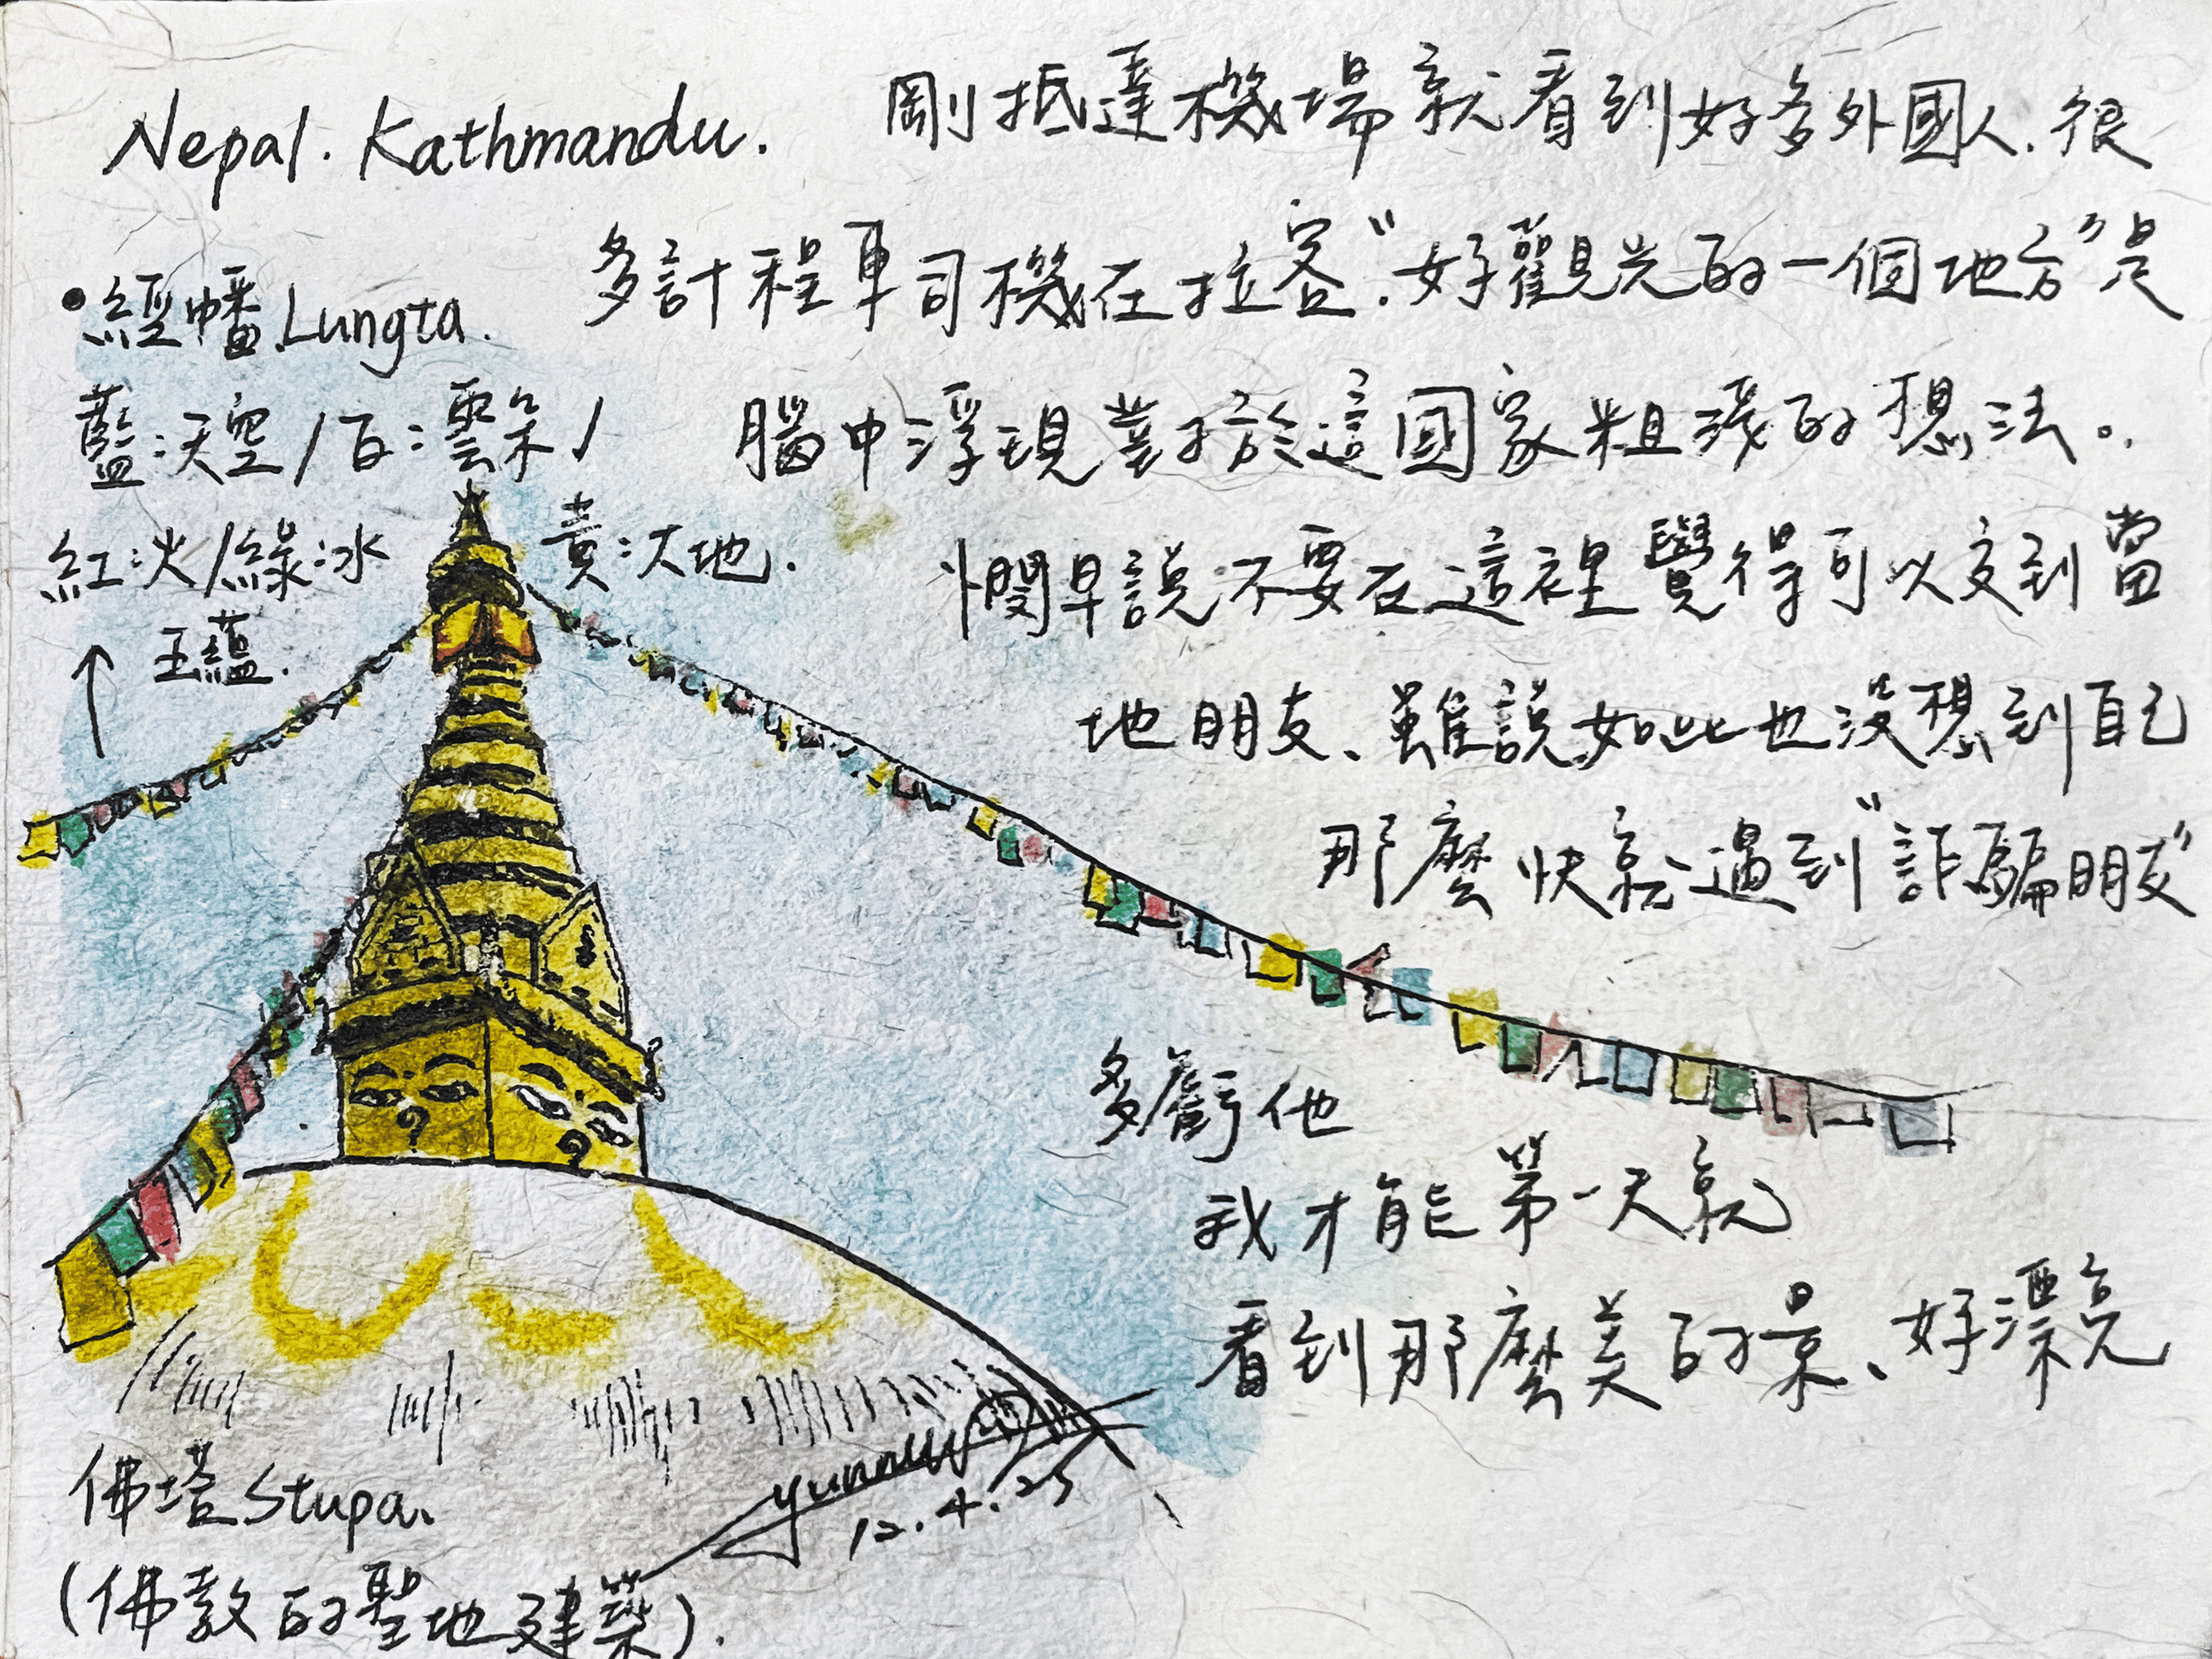 Nepal. Kathmandu.
剛抵達機場就看到好多外國人.很
多計程車司機在拉客."好觀光的一個地方"是
腦中浮現對於這國家粗淺的想法。
憫早說不要在這裡覺得可以交到當
地朋友、雖說如此也沒想到自己
那麼快就遇到"詐騙朋友"
多虧他
我才能第一天就
看到那麼美的景、好漂亮
•經幡.Lungta.
藍:天空/白:雲朵/
紅:火/綠:水
黃:大地.
五蘊.
佛塔Stupa.
(佛教的聖地建築).
12.4.25